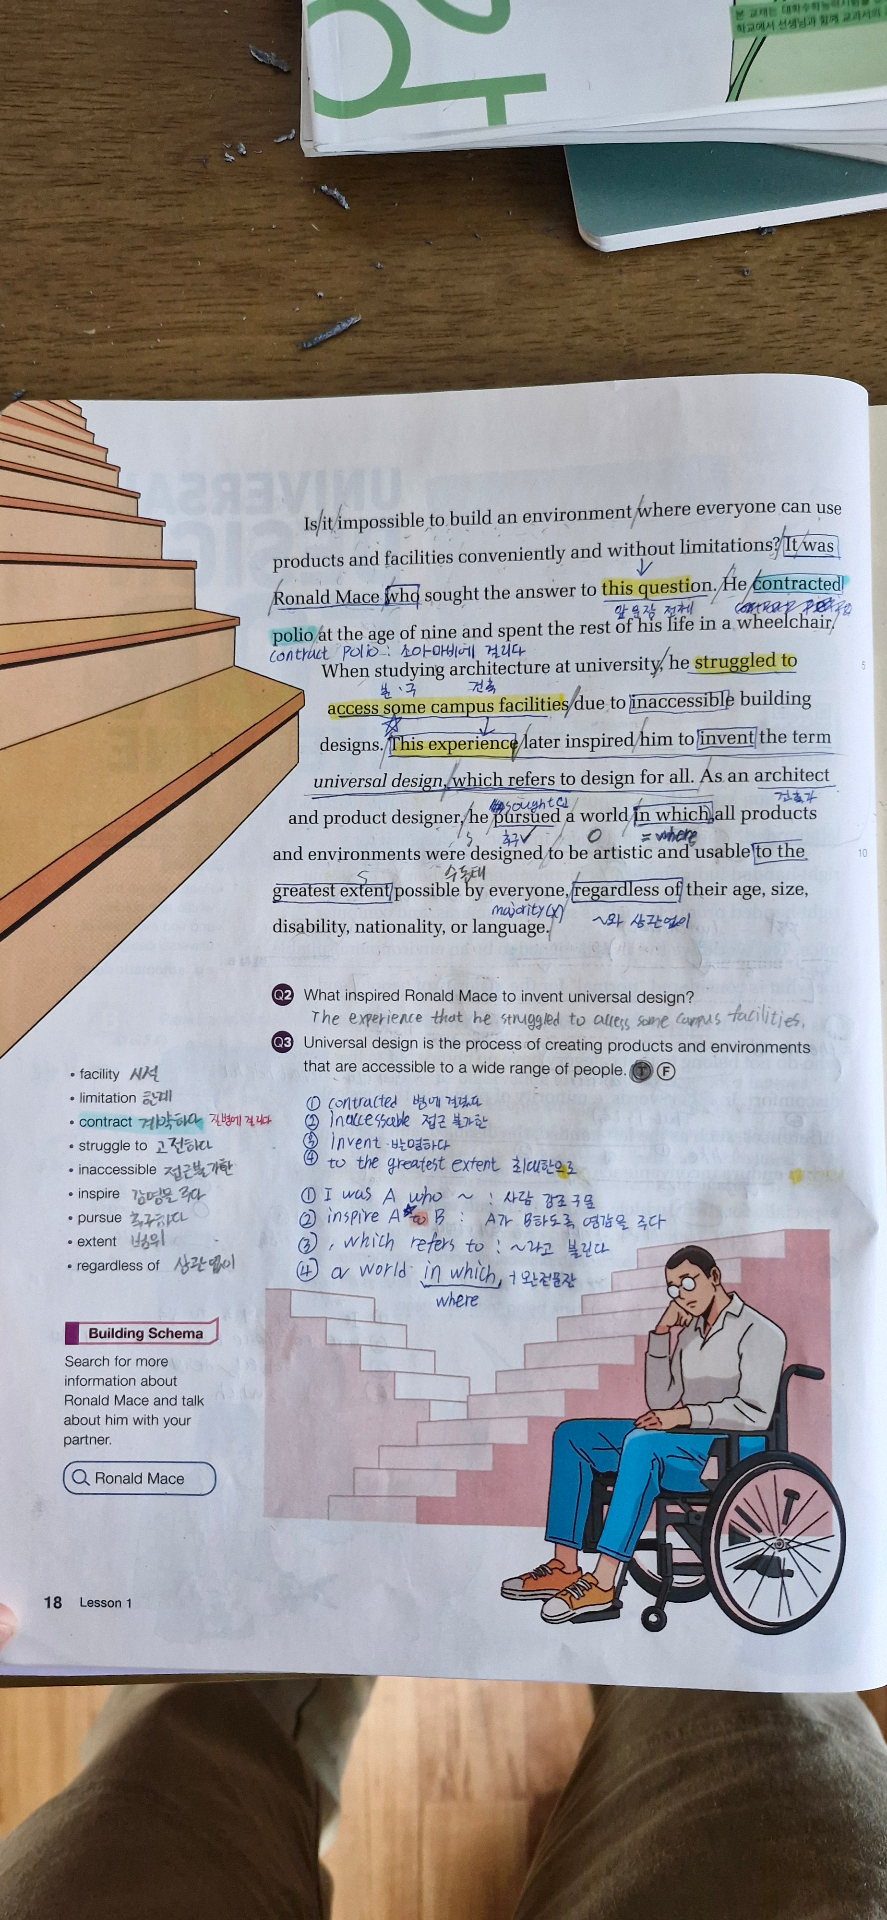 본 교재는 대학수학능력시험을
학교에서 선생님과 함께 교과서의
Is it impossible to build an environment where everyone can use
products and facilities conveniently and without limitations? It was
Ronald Mace who sought the answer to this question. He contracted
앞 문장 전체
polio at the age of nine and spent the rest of his life in a wheelchair.
contract polio : 소아마비에 걸리다
When studying architecture at university, he struggled to
5
건축
access some campus facilities due to inaccessible building
designs. This experience later inspired him to invent the term
universal design, which refers to design for all. As an architect
건축가
sought
and product designer, he pursued a world in which all products
추구
= where
and environments were designed to be artistic and usable to the
10
수동태
greatest extent possible by everyone, regardless of their age, size,
majority(x)
~와 상관없이
disability, nationality, or language.
Q2 What inspired Ronald Mace to invent universal design?
The experience that he struggled to access some campus facilities.
Q3 Universal design is the process of creating products and environments
that are accessible to a wide range of people. T F
• facility 시설
• limitation 한계
• contract 계약하다 질병에 걸리다
• struggle to 고전하다
• inaccessible 접근불가한
• inspire 감명을 주다
• pursue 추구하다
• extent 범위
• regardless of 상관없이
① contracted 병에 걸렸다
② inaccessable 접근 불가한
③ invent 발명하다
④ to the greatest extent 최대한으로
① I was A who ~ : 사람 강조구문
② inspire A to B : A가 B하도록 영감을 주다
③ , which refers to : ~라고 불린다
④ a world in which, + 완전문장
where
Building Schema
Search for more
information about
Ronald Mace and talk
about him with your
partner.
Ronald Mace
18 Lesson 1